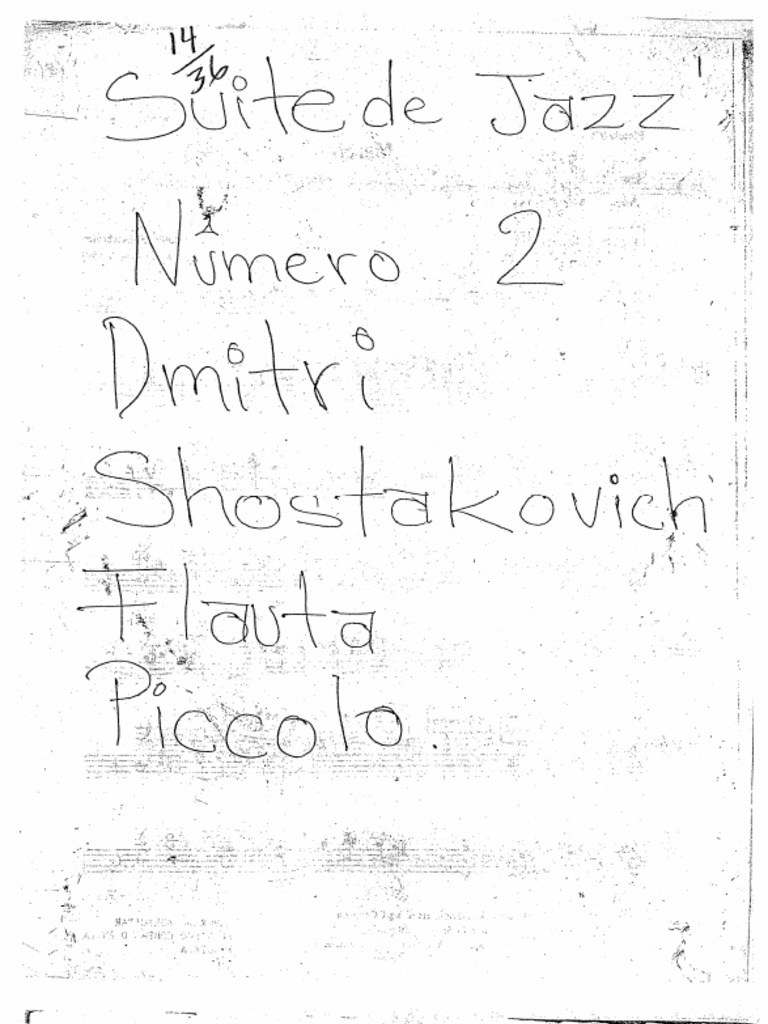 14/36
Suite de Jazz
Número 2
Dmitri
Shostakovich
Flauta
Piccolo.